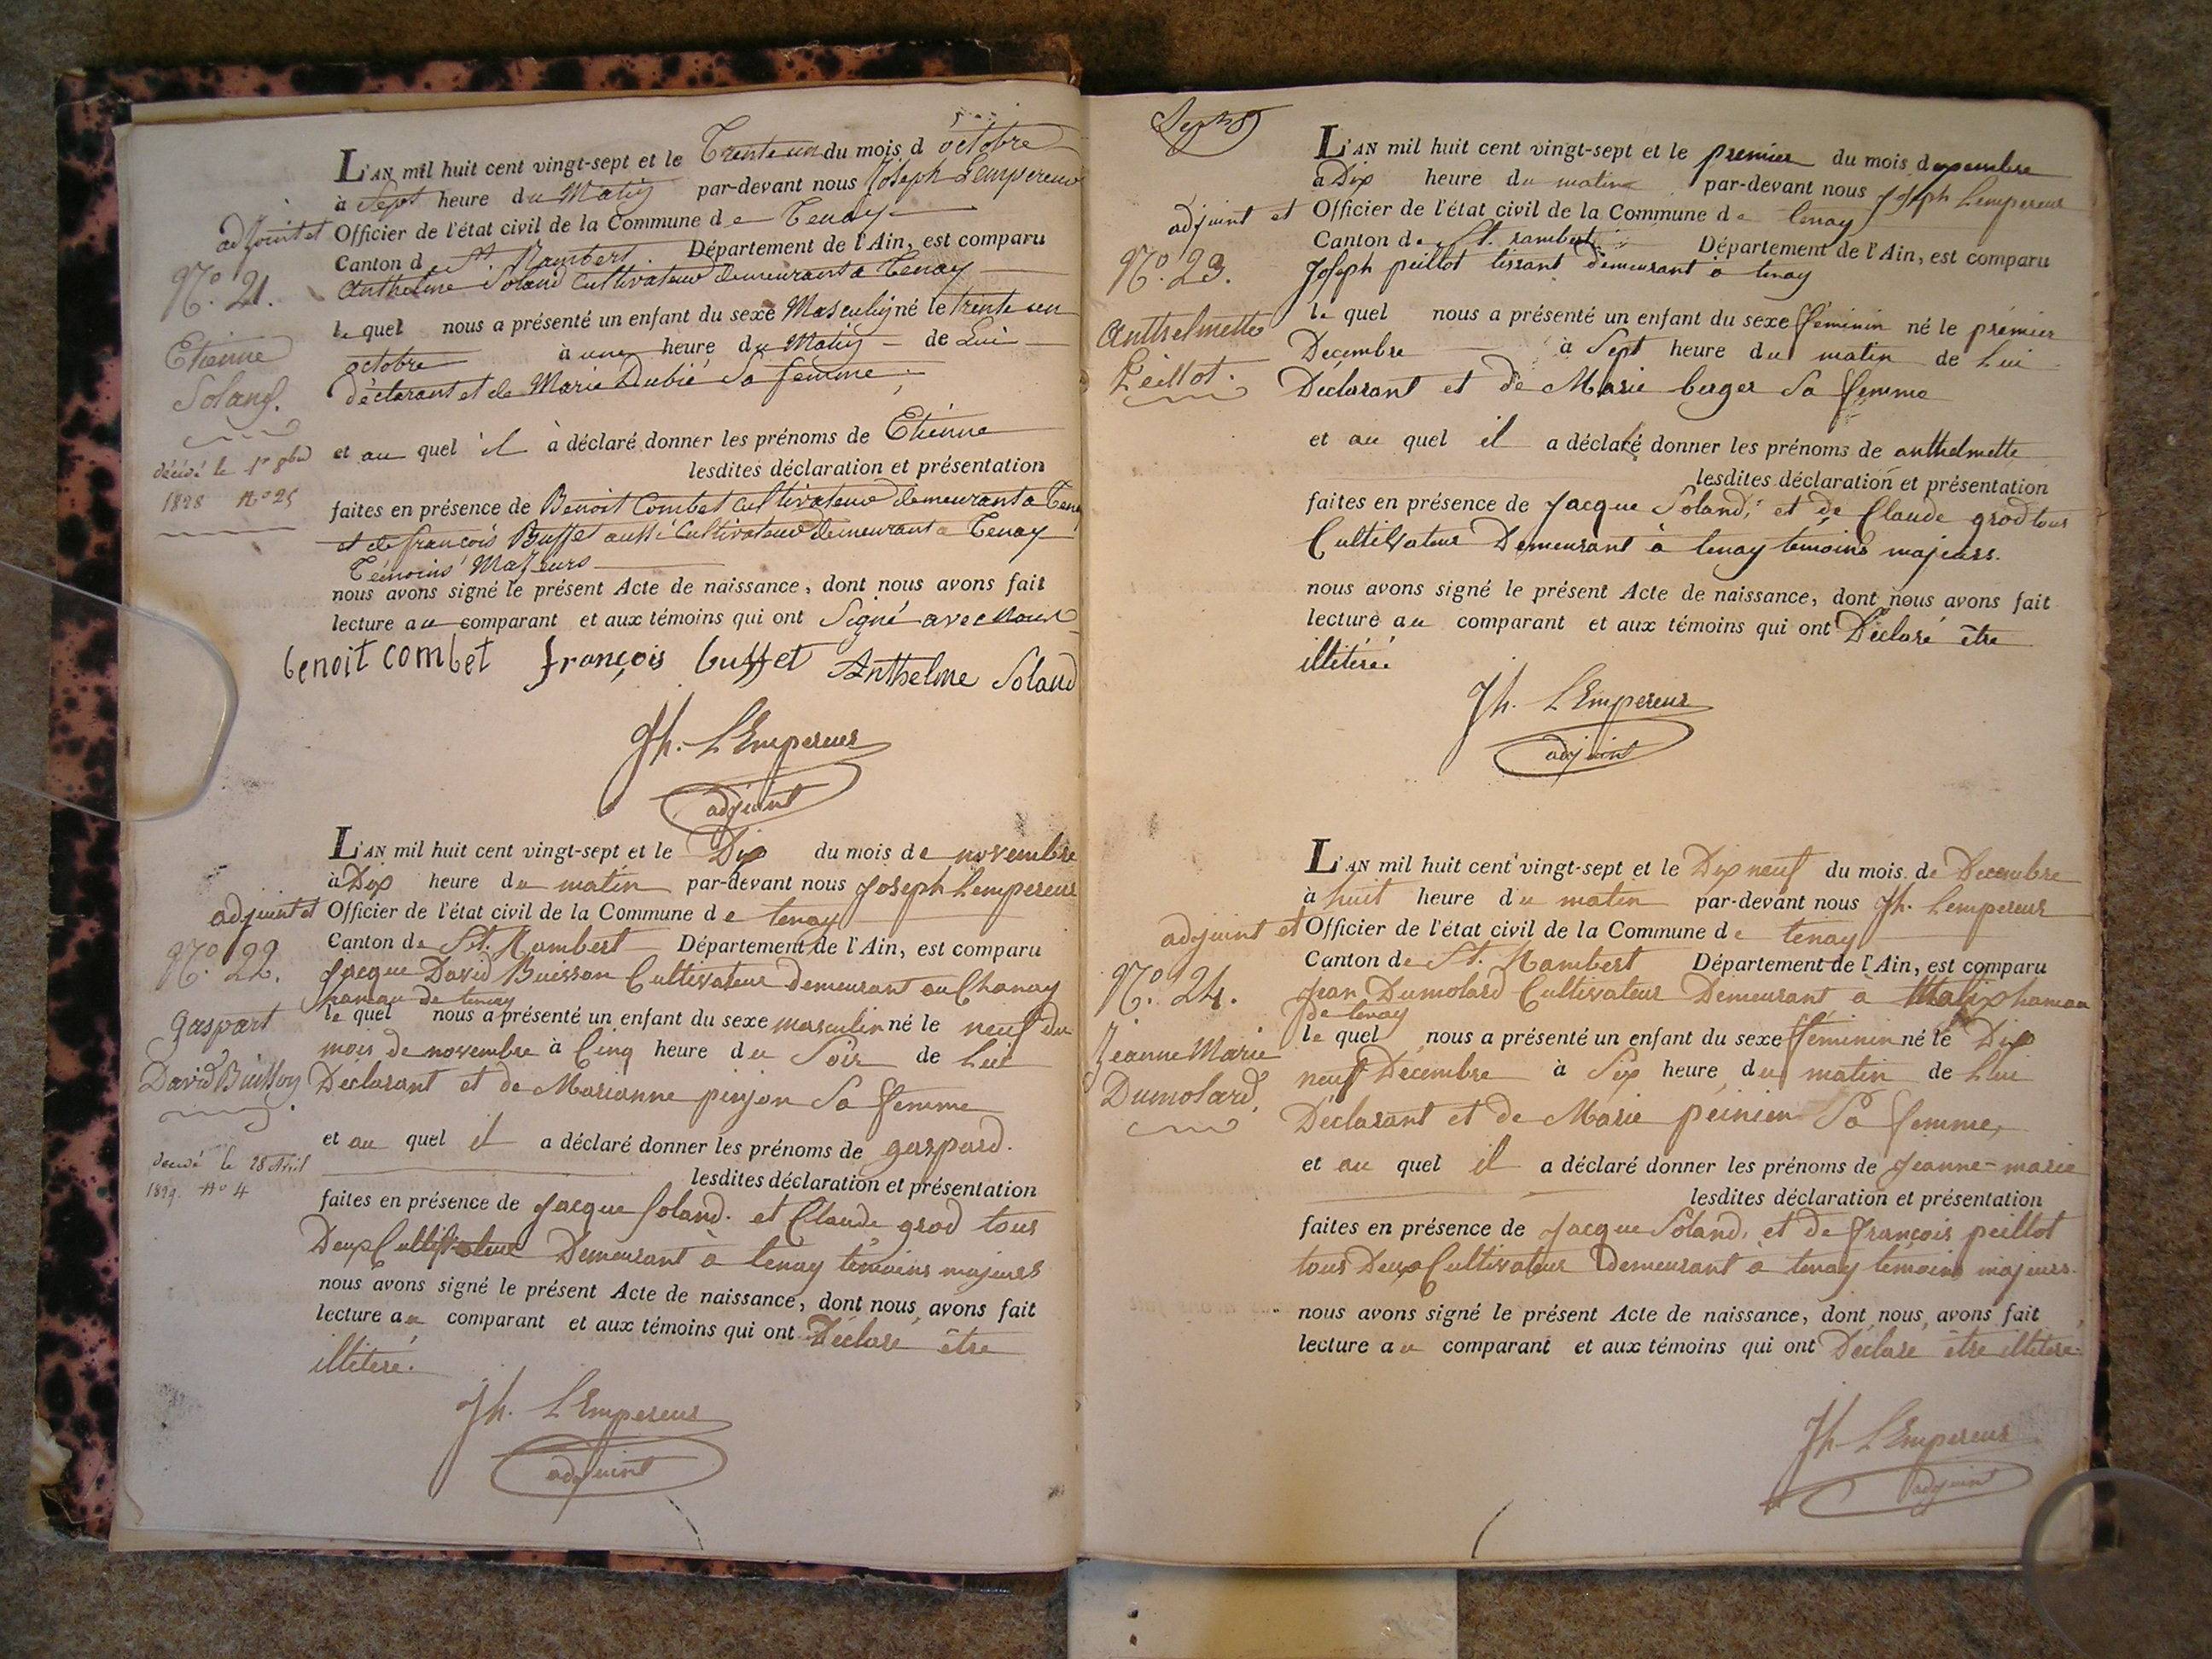 L'AN mil huit cent vingt-sept et le Trente un du mois d octobre
à Sept heure du Matin par-devant nous Joseph Lempereur
adjoint et Officier de l'état civil de la Commune de Tenay
Canton de St. Rambert. Département de l'Ain, est comparu
Anthelme Soland Cultivateur demeurant a Tenay
N.º 21.
Etienne
Soland.
décédé le 1er 8bre
1828 nº 25
le quel nous a présenté un enfant du sexe Masculin né le trente un
octobre à une heure du Matin de Lui
déclarant et de Marie Dubié Sa femme
et au quel il à déclaré donner les prénoms de Etienne
lesdites déclaration et présentation
faites en présence de Benoit Combet Cultivateur demeurant a Tenay
et de françois Buffet aussi Cultivateur demeurant a Tenay
Témoins Majeurs
nous avons signé le présent Acte de naissance, dont nous avons fait
lecture au comparant et aux témoins qui ont Signé avec nous
benoit combet françois buffet Anthelme Soland
Jh. L'Empereur
adjoint
L'AN mil huit cent vingt-sept et le Dix du mois de novembre
à Dix heure du matin par-devant nous Joseph Lempereur
adjoint et Officier de l'état civil de la Commune de tenay
Canton de St. Rambert Département de l'Ain, est comparu
Jacque David Buisson Cultivateur demeurant au Chanay
hameau de tenay
N.º 22.
Gaspart
David Buisson
décédé le 28 Avril
nº 4
le quel nous a présenté un enfant du sexe masculin né le neuf du
mois de novembre à Cinq heure du Soir de Lui
Déclarant et de Marianne pinjon Sa femme
et au quel il a déclaré donner les prénoms de gaspard.
lesdites déclaration et présentation
faites en présence de Jacque Soland. et Claude grod tous
Deux Cultivateur Demeurant à tenay témoins majeurs
nous avons signé le présent Acte de naissance, dont nous avons fait
lecture au comparant et aux témoins qui ont Déclaré être
illiteré.
Jh. L'Empereur
adjoint
L'AN mil huit cent vingt-sept et le premier du mois de
à Dix heure du matin par-devant nous Joseph Lempereur
adjoint et Officier de l'état civil de la Commune de tenay
Canton de St. rambert Département de l'Ain, est comparu
Joseph peillot tissant demeurant à tenay
N.º 23.
Anthelmette
Peillot.
le quel nous a présenté un enfant du sexe féminin né le prémier
Décembre à Sept heure du matin de Lui
Déclarant et de Marie berger Sa femme
et au quel il a déclaré donner les prénoms de anthelmette
lesdites déclaration et présentation
faites en présence de Jacque Soland, et de Claude grod tous
Cultivateur Demeurant à tenay témoins majeurs.
nous avons signé le présent Acte de naissance, dont nous avons fait
lecture au comparant et aux témoins qui ont Déclaré être
illiteré.
Jh. L'Empereur
adjoint
L'AN mil huit cent vingt-sept et le Dix neuf du mois de Decembre
à huit heure du matin par-devant nous Jh. Lempereur
adjoint et Officier de l'état civil de la Commune de tenay
Canton de St. Rambert Département de l'Ain, est comparu
Jean Dumolard Cultivateur Demeurant à hamau
de tenay
N.º 24.
Jeanne Marie
Dumolard.
le quel nous a présenté un enfant du sexe féminin né le Dix
neuf Décembre à Six heure du matin de Lui
Déclarant et de Marie peinien Sa femme,
et au quel il a déclaré donner les prénoms de Jeanne-marie
lesdites déclaration et présentation
faites en présence de Jacque Soland, et de françois peillot
tous Deux Cultivateur Demeurant à tenay témoins majeurs.
nous avons signé le présent Acte de naissance, dont nous avons fait
lecture au comparant et aux témoins qui ont Déclaré être illiteré.
Jh. L'Empereur
adjoint